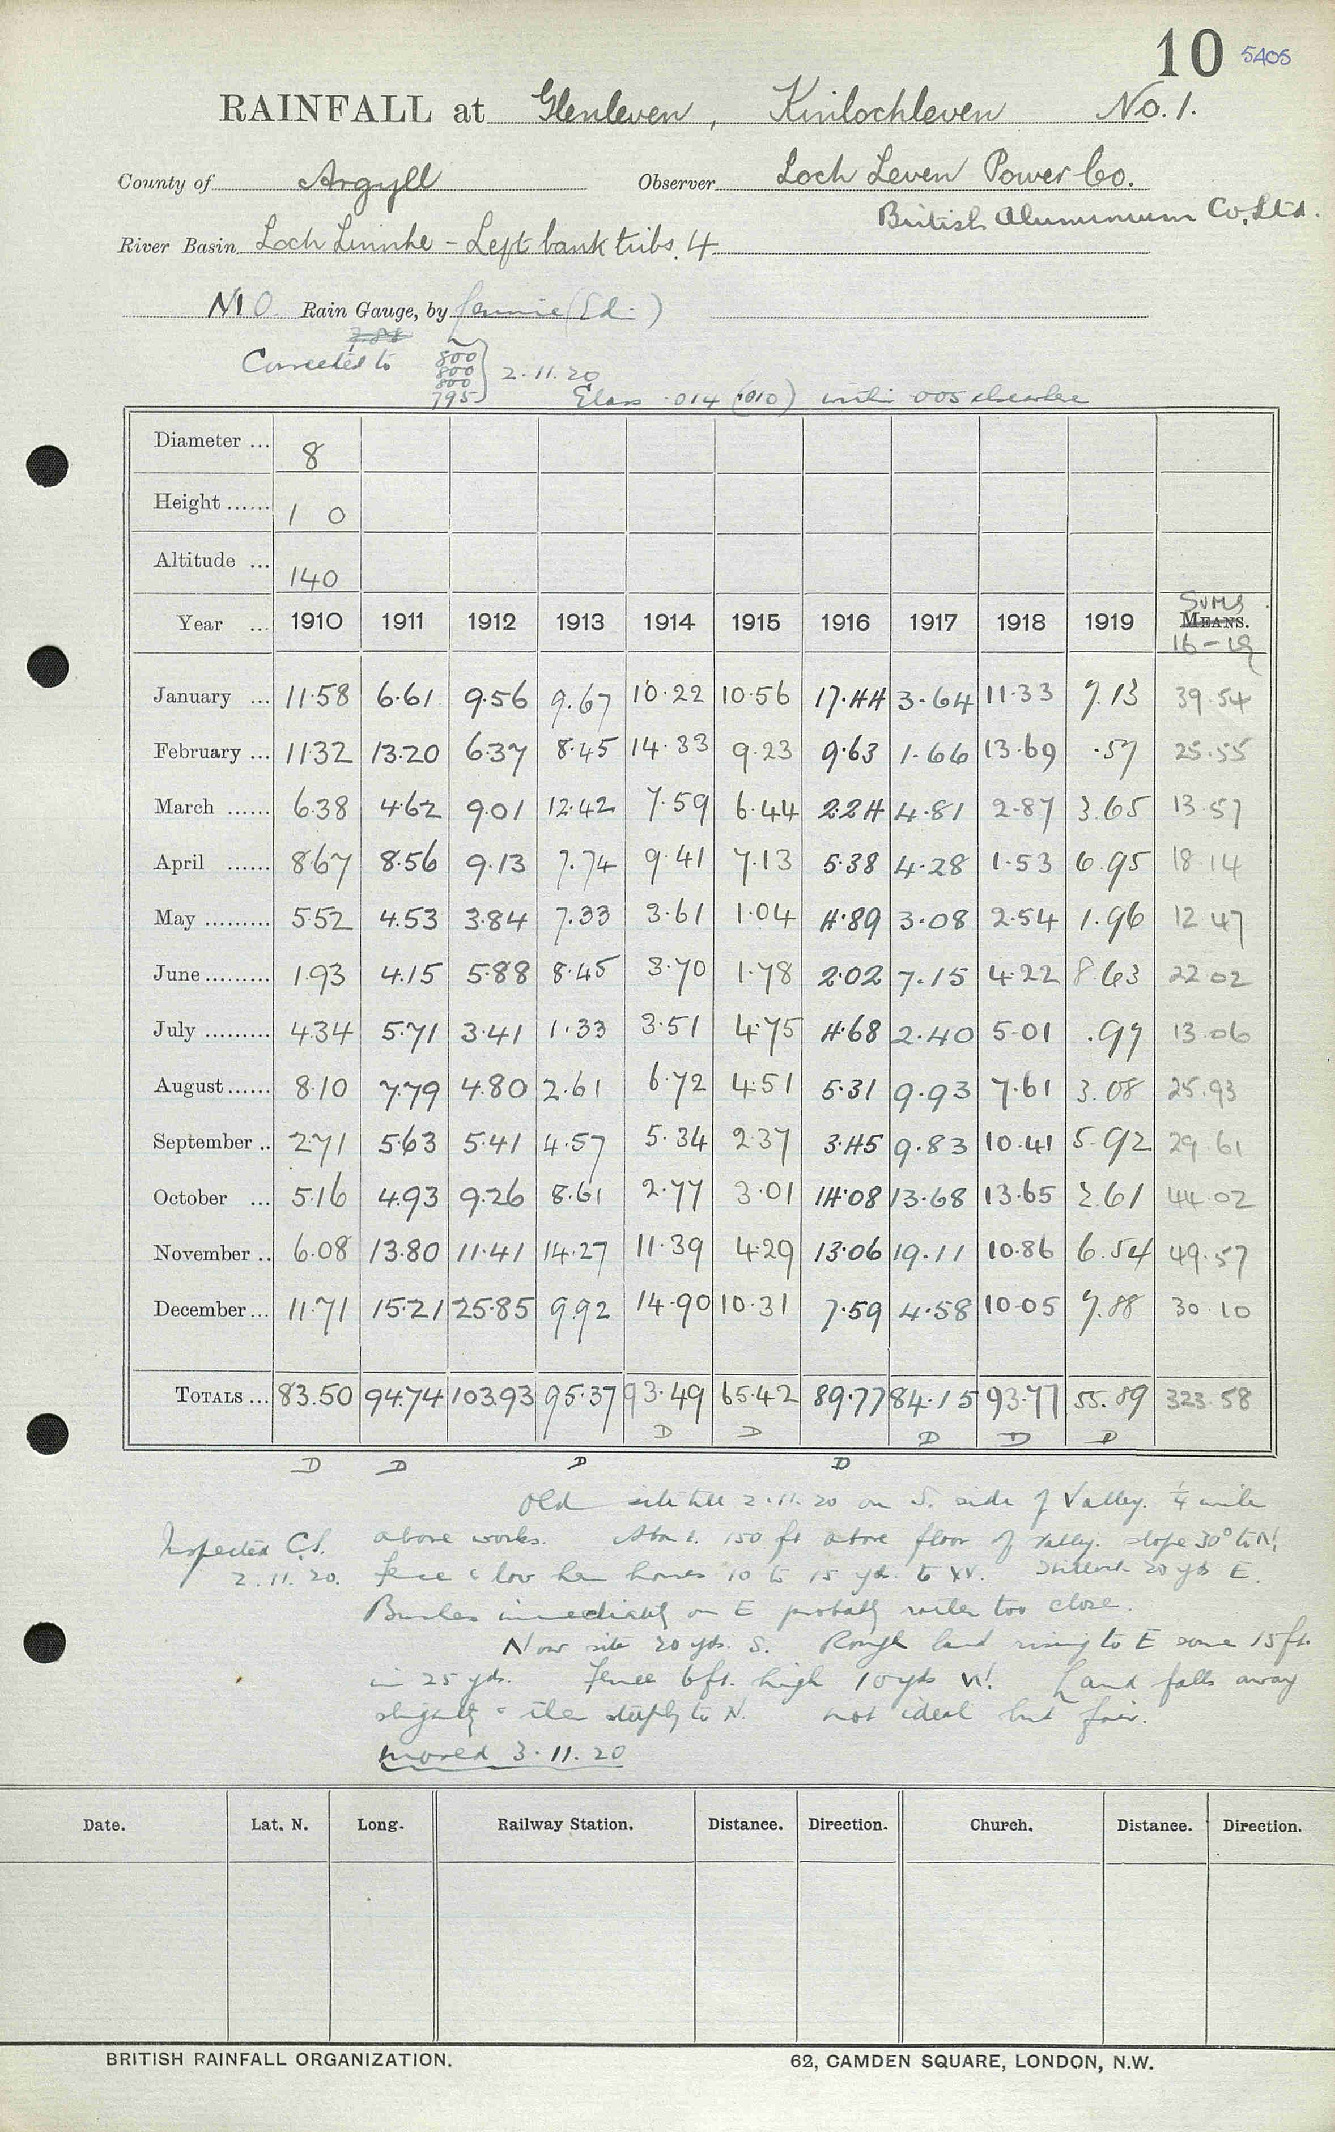 10 5405
RAINFALL at Glenleven, Kinlochleven No. 1.
County of Argyll Observer Loch Leven Power Co.
British Aluminium Co, Ltd.
River Basin Loch Linnhe - Left bank tribs. 4
Rain Gauge, by (Ed.)
Corrected to 800
800 2.11.20
800
795 Glass .014 (.010) within 005 elsewhere
Diameter ... 8
Height ...... 1 0
Altitude ... 140
Sums
Year ... 1910 1911 1912 1913 1914 1915 1916 1917 1918 1919 MEANS.
16-19
January ... 11.58 6.61 9.56 9.67 10.22 10.56 17.44 3.64 11.33 7.13 39.54
February ... 11.32 13.20 6.37 8.45 14.33 9.23 9.63 1.66 13.69 .57 25.55
March ...... 6.38 4.62 9.01 12.42 7.59 6.44 2.24 4.81 2.87 3.65 13.57
April ...... 8.67 8.56 9.13 7.74 9.41 7.13 5.38 4.28 1.53 6.95 18.14
May ......... 5.52 4.53 3.84 7.33 3.61 1.04 4.89 3.08 2.54 1.96 12.47
June ......... 1.93 4.15 5.88 8.45 3.70 1.78 2.02 7.15 4.22 8.63 22.02
July ......... 4.34 5.71 3.41 1.33 3.51 4.75 4.68 2.40 5.01 .97 13.06
August ...... 8.10 7.79 4.80 2.61 6.72 4.51 5.31 9.93 7.61 3.08 25.93
September .. 2.71 5.63 5.41 4.57 5.34 2.37 3.45 9.83 10.41 5.92 29.61
October ... 5.16 4.93 9.26 8.61 2.77 3.01 14.08 13.68 13.65 2.61 44.02
November .. 6.08 13.80 11.41 14.27 11.39 4.29 13.06 19.11 10.86 6.54 49.57
December ... 11.71 15.21 25.85 9.92 14.90 10.31 7.59 4.58 10.05 7.88 30.10
TOTALS ... 83.50 94.74 103.93 95.37 93.49 65.42 89.77 84.15 93.77 55.89 323.58
D D D D D
D D D D
Old site till 2.11.20 on S. side of Valley. ¼ mile
Inspected C.S. above works. About 150 ft above floor of valley. slope 30° to N.
2.11.20. Fence & low hen houses 10 to 15 yds. to W. 20 yds E.
Bushes immediately on E probably rather too close.
Now site 20 yds. S. Rough land rising to E some 15 ft.
in 25 yds. Fence 6 ft. high 10 yds W. Land falls away
slightly & then steeply to N. not ideal but fair.
moved 3.11.20
Date. Lat. N. Long. Railway Station. Distance. Direction. Church. Distance. Direction.
BRITISH RAINFALL ORGANIZATION. 62, CAMDEN SQUARE, LONDON, N.W.